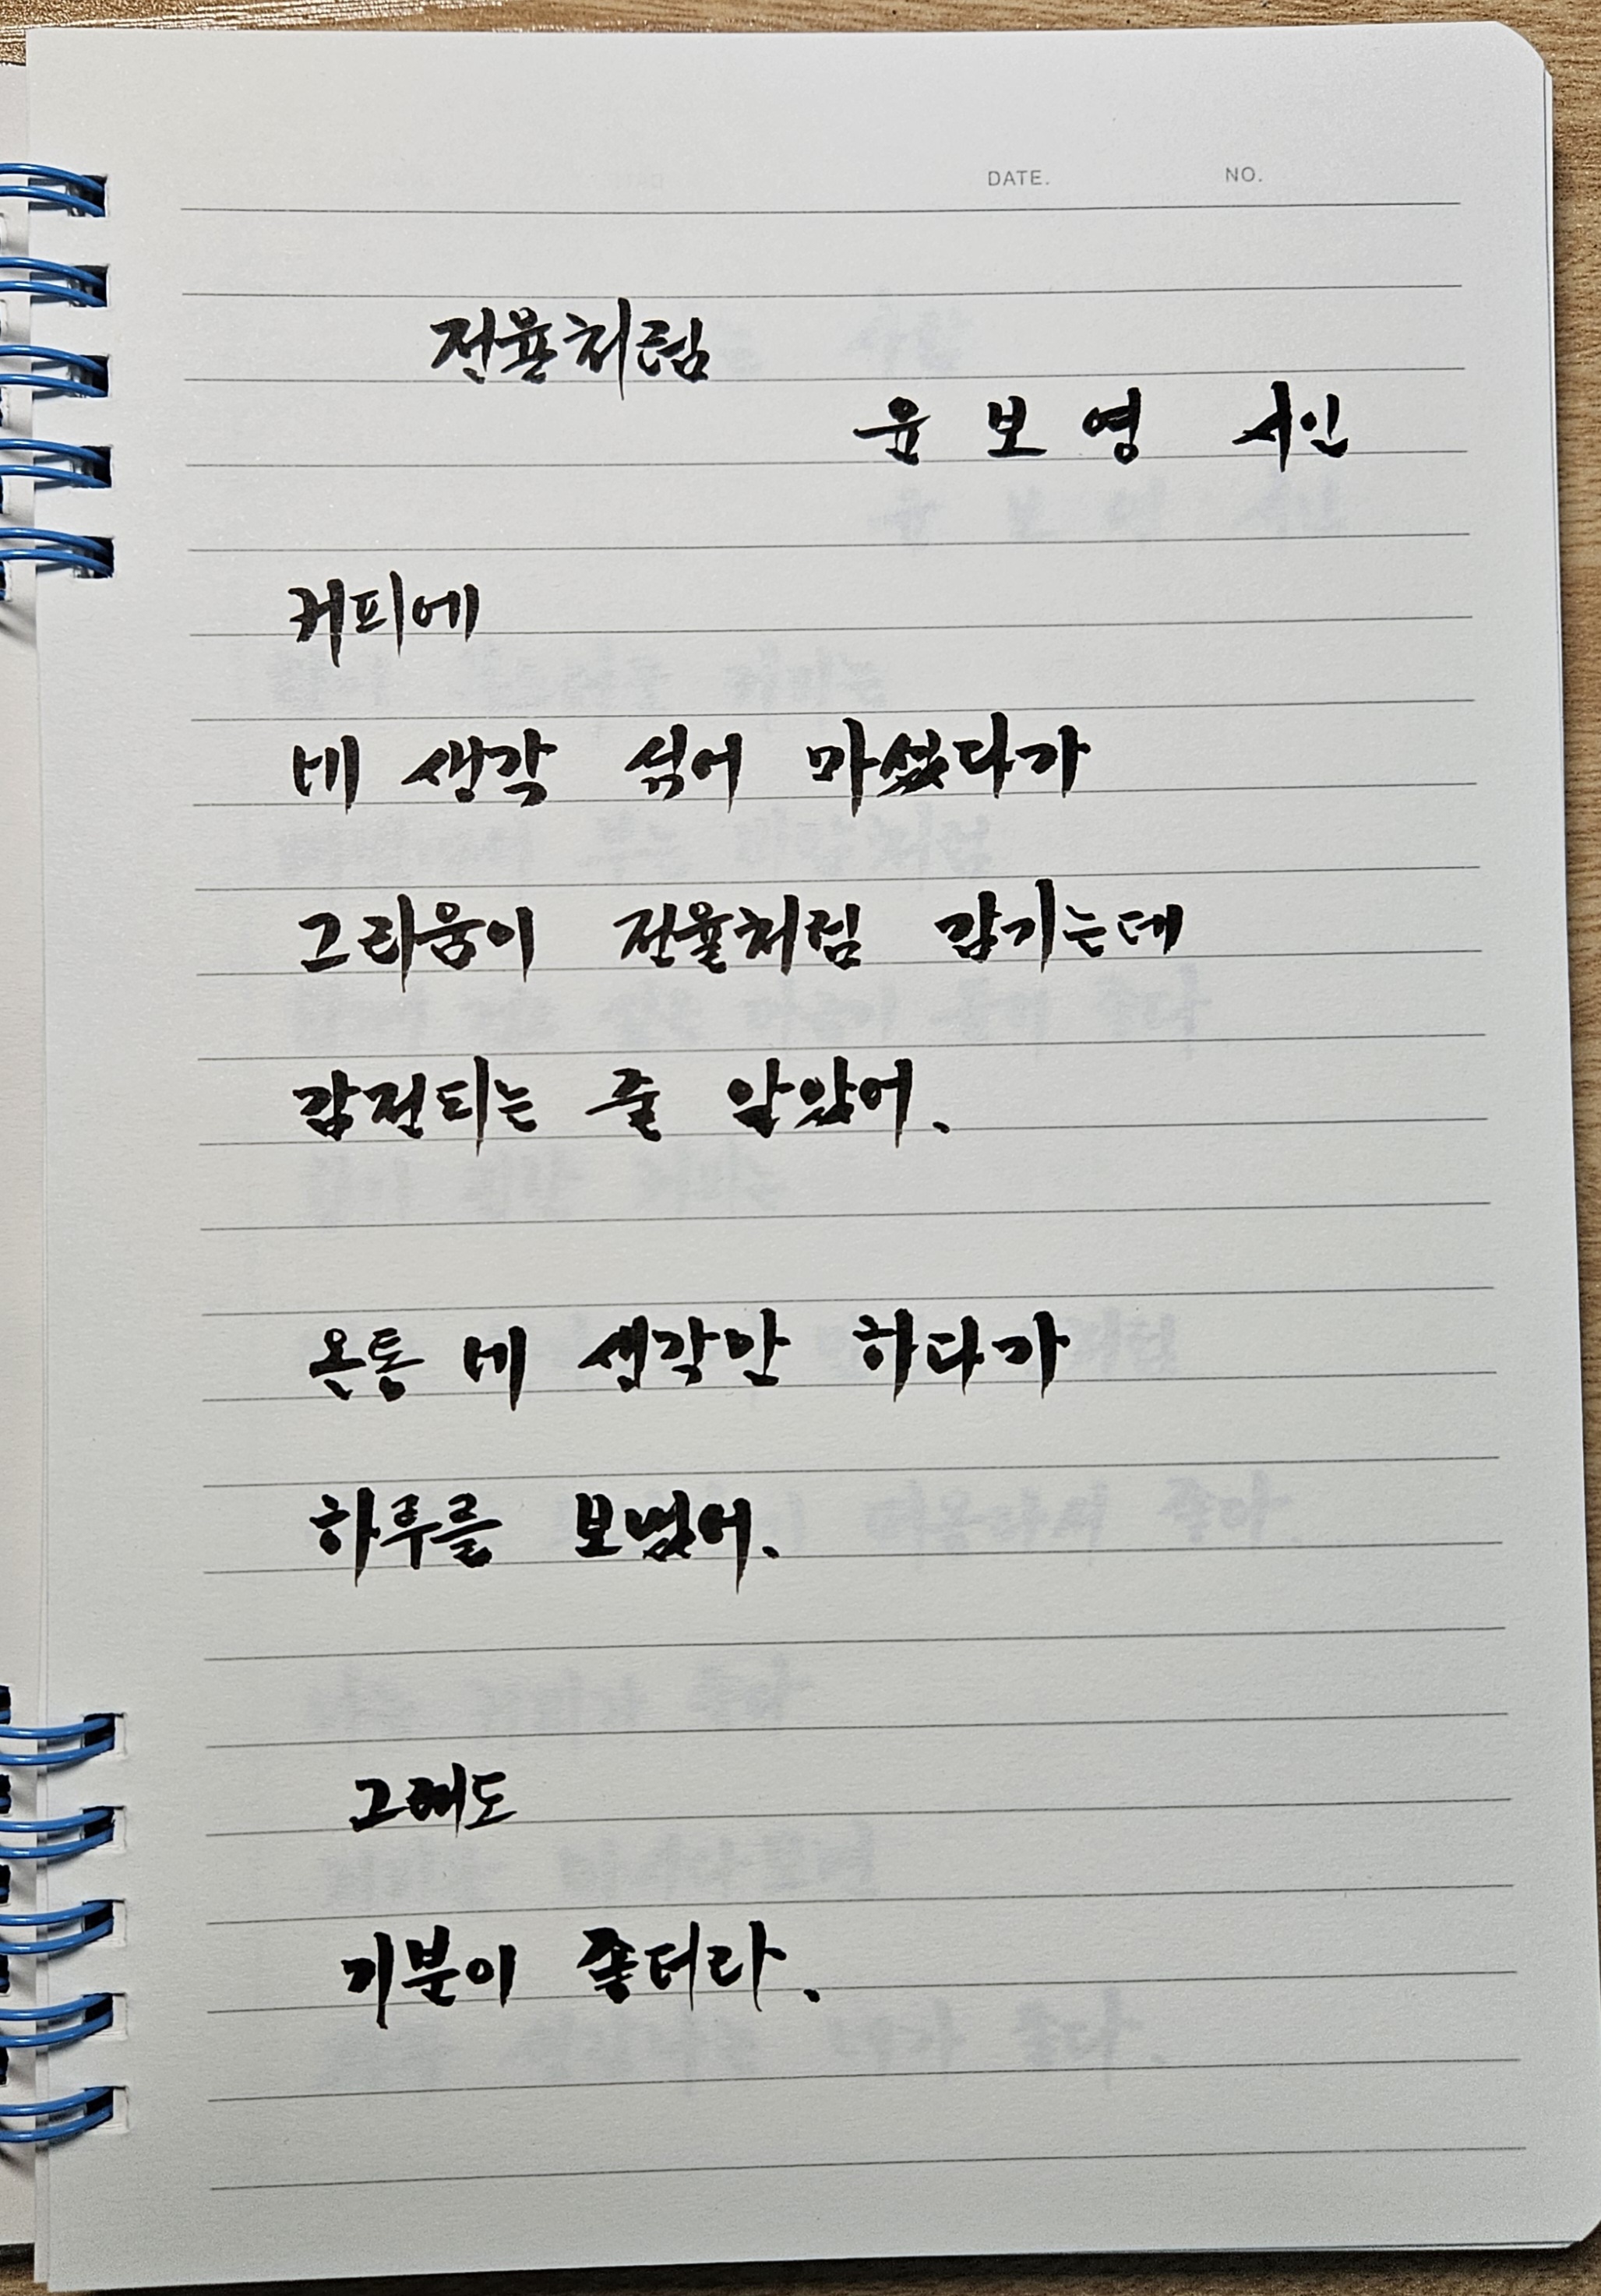 DATE. NO.
전율처럼
윤 보 영 시인
커피에
네 생각 섞어 마셨다가
그리움이 전율처럼 감기는데
감전되는 줄 알았어.
온통 네 생각만 하다가
하루를 보냈어.
그래도
기분이 좋더라.